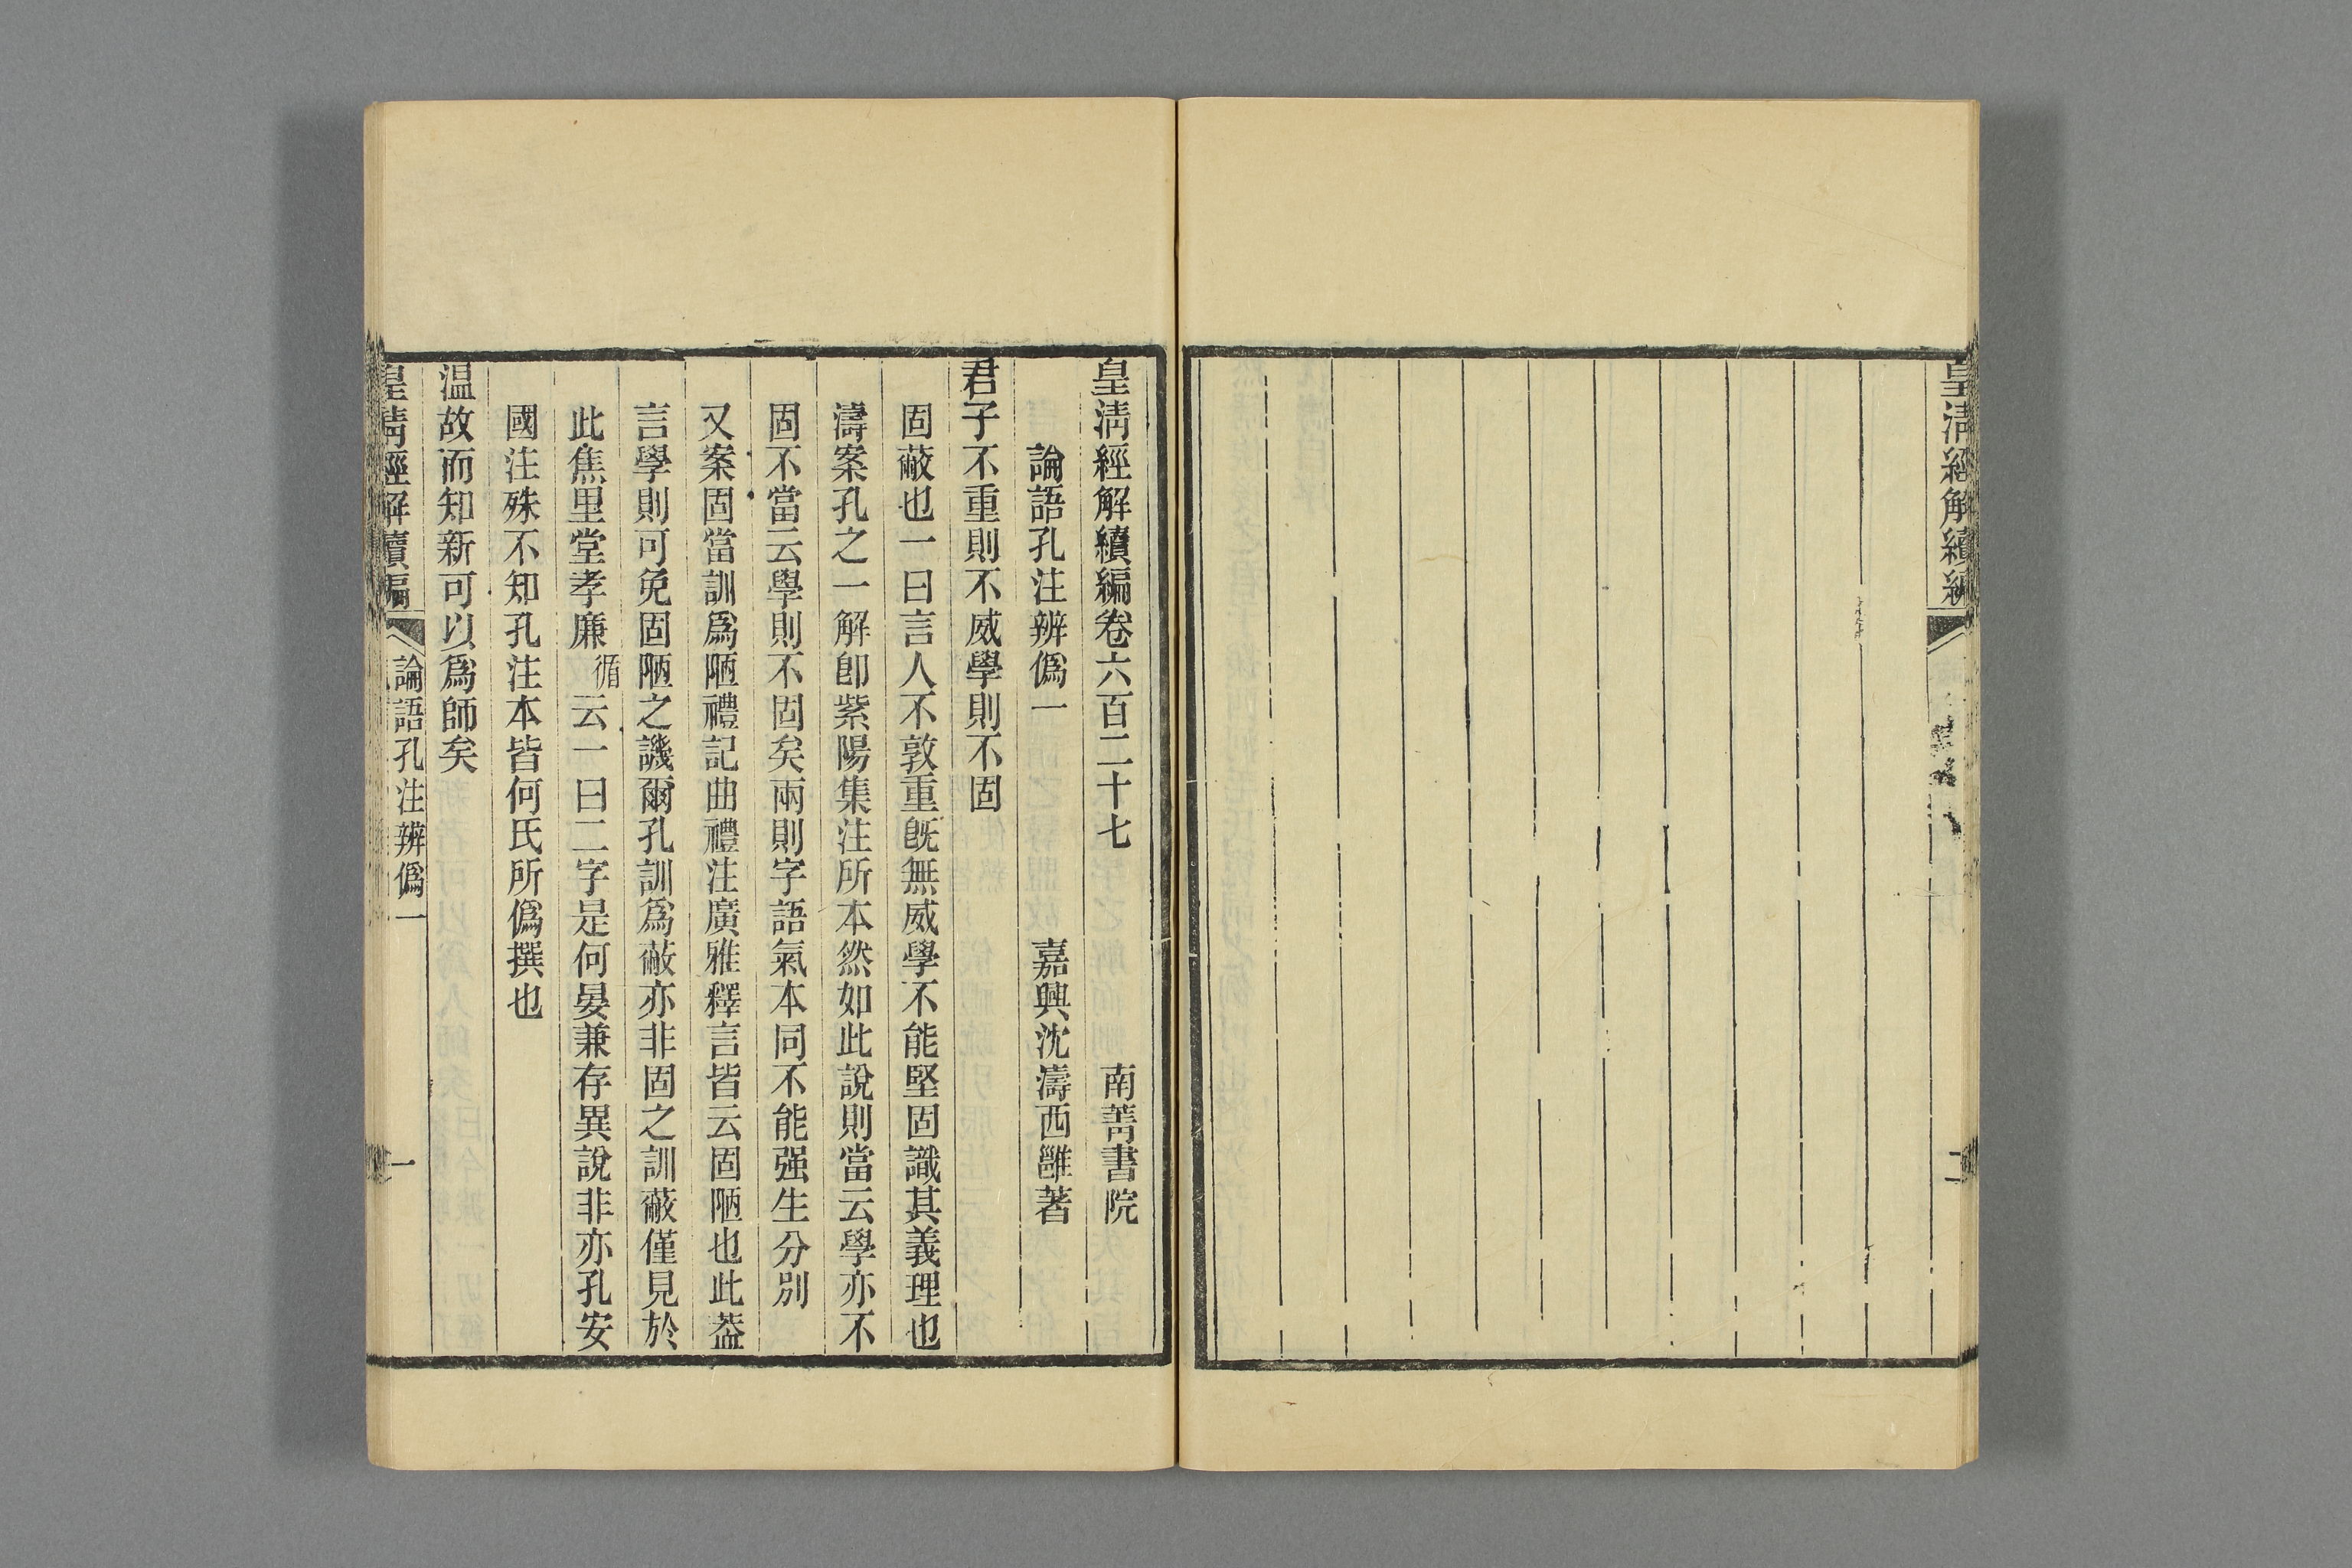 皇清經解續編
二
皇清經解續編卷六百二十七 南菁書院
論語孔注辨僞一 嘉興沈濤西雝著
君子不重則不威學則不固
固蔽也一曰言人不敦重旣無威學不能堅固識其義理也
濤案孔之一解卽紫陽集注所本然如此說則當云學亦不
固不當云學則不固矣兩則字語氣本同不能强生分別
又案固當訓爲陋禮記曲禮注廣雅釋言皆云固陋也此葢
言學則可免固陋之譏爾孔訓爲蔽亦非固之訓蔽僅見於
此焦里堂孝廉循云一曰二字是何晏兼存異說非亦孔安
國注殊不知孔注本皆何氏所僞撰也
温故而知新可以爲師矣
皇清經解續編
論語孔注辨僞一
一